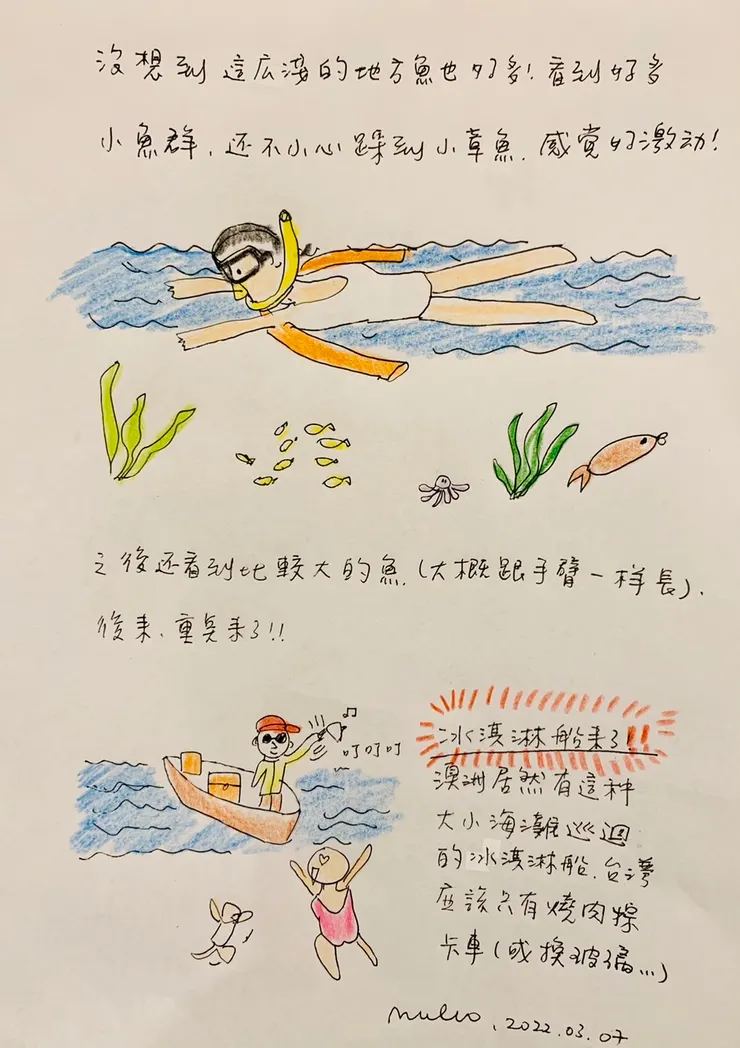 沒想到這広淺的地方魚也好多!看到好多
小魚群,还不小心踩到小草魚,感觉好激动!
之後还看到比較大的魚,(大概跟手臂一样長),
後来,重点来了!!
叮叮叮
冰淇淋船来了!!
澳洲居然有這种
大小海灘巡迴
的冰淇淋船,台灣
应該只有燒肉粽
卡車(或換玻璃...)
2022.03.07